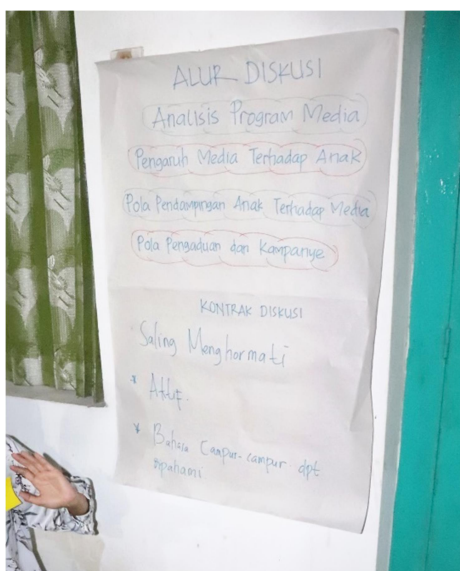 ALUR DISKUSI
Analisis Program Media
Pengaruh Media Terhadap Anak
Pola Pendampingan Anak Terhadap Media
Pola Pengaduan dan Kampanye
KONTRAK DISKUSI
Saling Menghormati
* Aktif.
* Bahasa Campur-campur dpt
dipahami